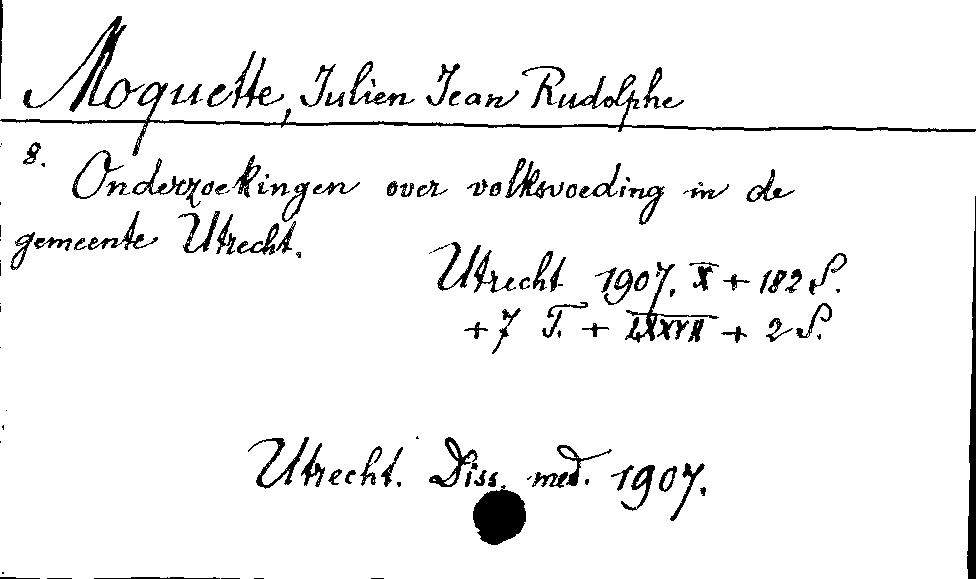 Moquette, Julien Jean Rudolphe
8.
Onderzoekingen over volksvoeding in de
gemeente Utrecht.
Utrecht 1907. X + 182 S.
+ 7 T. + + 2 S.
Utrecht. Diss. med. 1907.